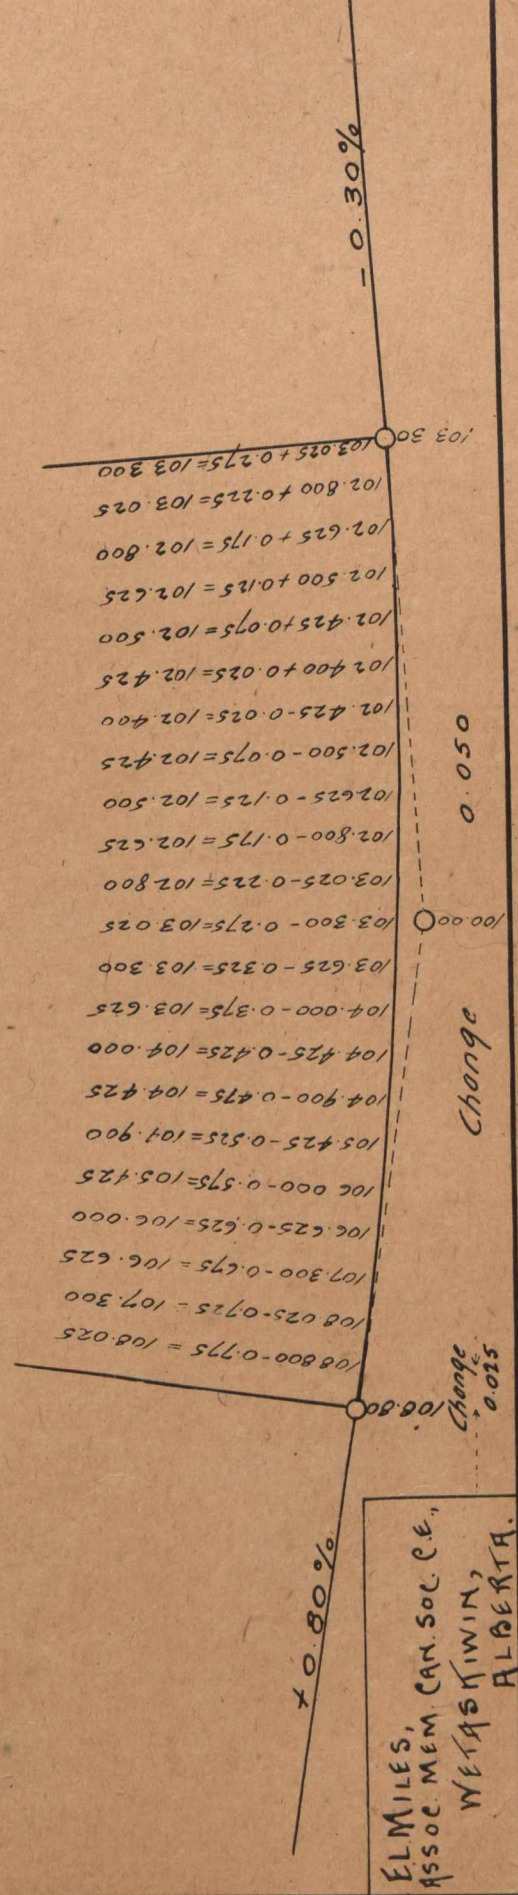 - 0.30%
103 30
103.025 + 0.275 = 103 300
102.800 + 0.225 = 103.025
102.625 + 0.175 = 102.800
102.500 + 0.125 = 102.625
102.425 + 0.075 = 102.500
102 400 + 0.025 = 102.425
102.425 - 0.025 = 102.400
102.500 - 0.075 = 102.425
102625 - 0.125 = 102.500
102.800 - 0.175 = 102.625
103.025 - 0.225 = 102.800
103.300 - 0.275 = 103.025
103.625 - 0.325 = 103 300
104.000 - 0.375 = 103.625
104.425 - 0.425 = 104.000
104.900 - 0.475 = 104.425
105.425 - 0.525 = 104.900
106 000 - 0.575 = 105.425
106.625 - 0.625 = 106.000
107.300 - 0.675 = 106.625
108 025 - 0.725 = 107.300
108 800 - 0.775 = 108.025
100.00
108.80
Change 0.050
Change
0.025
+ 0.80%
E.L. MILES,
ASSOC. MEM. CAN. SOC. C.E.,
WETASKIWIN,
ALBERTA.